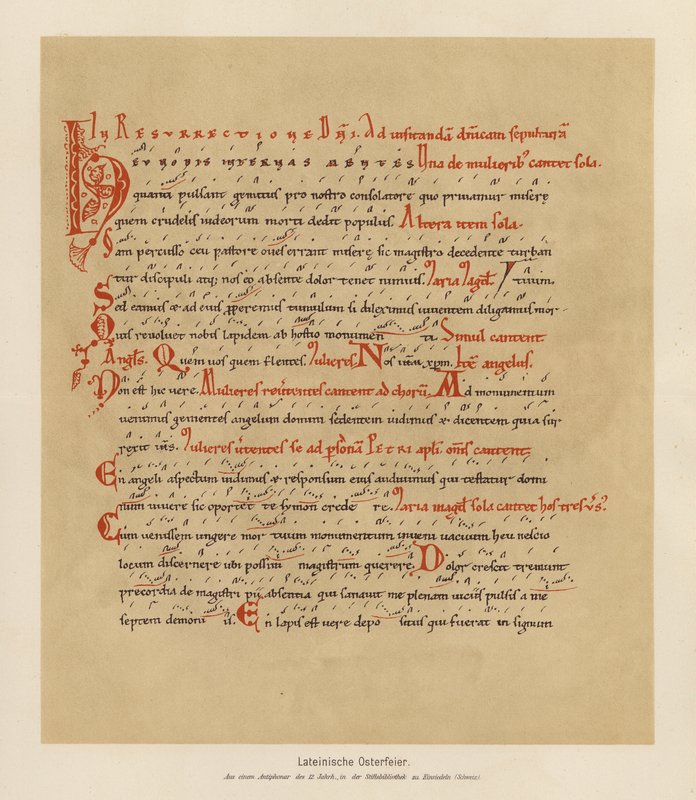 In Resurrectione Dñi. Ad uisitandã dñicam sepulturã
Heu nobis internas mentes Una de mulierib' cantet sola.
quanti pulsant gemitus pro nostro consolatore quo priuamur miserę
quem crudelis iudeorum morti dedit populus. Altera item sola.
Iam percusso ceu pastore oues errant miserę sic magistro decedente turban
tur discipuli atq; nos eo absente dolor tenet nimius. Maria Magd. tertium.
Sed eamus & ad eius pperemus tumulum si dileximus uiuentem diligamus mor
Quis reuoluet nobis lapidem ab hostio monumen ti. Simul cantent
Angls. Quem uos quem flentes. Mulieres Nos ihm xpm. Ite angelus.
Non est hic vere. Mulieres reutentes cantent ad chorũ. Ad monumentum
uenimus gementes angelum domini sedentem uidimus & dicentem quia sur
rexit ihs. Mulieres utentes se ad psonã Petri apli oms cantent.
En angeli aspectum uidimus & responsum eius audiuimus qui testatur domi
num uiuere sic oportet te symon crede re. Maria magd sola cantet hos tres ůs.
Cum uenissem ungere mor tuum monumentum inueni uacuum heu nescio
locum discernere ubi possim magistrum querere. Dolor crescit tremunt
precordia de magistri pii absentia qui sanauit me plenam uiciis pulsis a me
septem demoni is. En lapis est vere depo situs qui fuerat in signum
Lateinische Osterfeier.
Aus einem Antiphonar des 12. Jahrh., in der Stiftsbibliothek zu Einsiedeln (Schweiz).